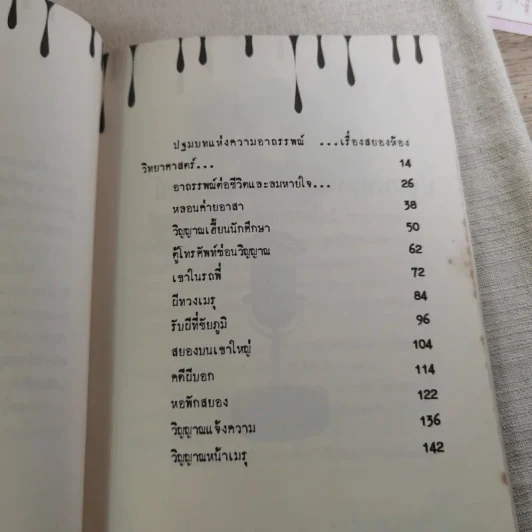 ปฐมบทแห่งความอาถรรพณ์ ...เรื่องสยองห้อง
วิทยาศาสตร์... 14
อาถรรพณ์ต่อชีวิตและลมหายใจ... 26
หลอนค่ายอาสา 38
วิญญาณเฮี้ยนนักศึกษา 50
ตู้โทรศัพท์ซ่อนวิญญาณ 62
เขาในรถพี่ 72
ผีทวงเมรุ 84
รับผีที่ชัยภูมิ 96
สยองบนเขาใหญ่ 104
คดีผีบอก 114
หอพักสยอง 122
วิญญาณแจ้งความ 136
วิญญาณหน้าเมรุ 142